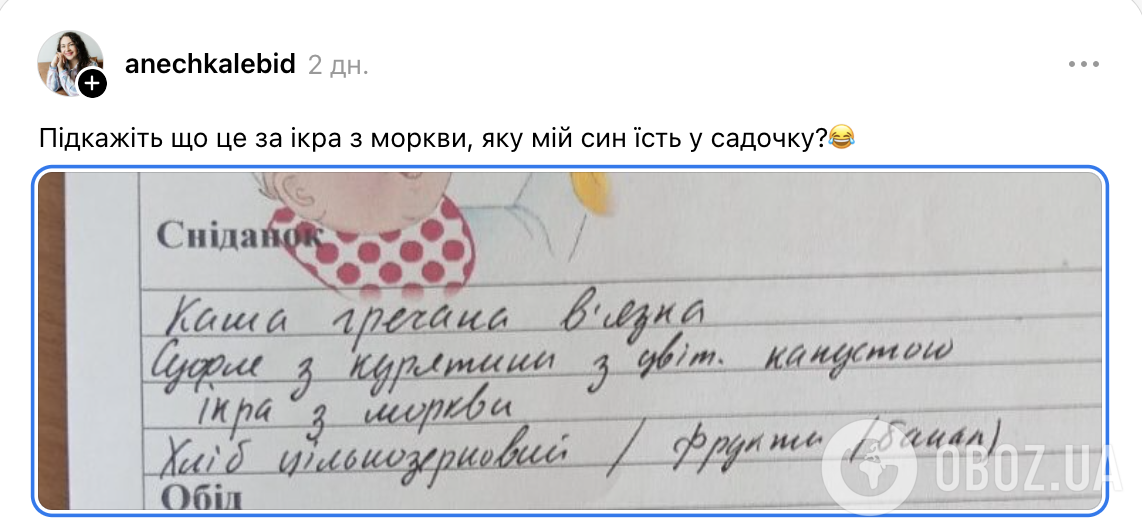 anechkalebid 2 дн.
Підкажіть що це за ікра з моркви, яку мій син їсть у садочку?😂
Сніданок
Каша гречана в'язка
Суфле з курятини з цвіт. капустою
ікра з моркви
Хліб цільнозерновий / фрукти (банан)
Обід
OBOZ.UA